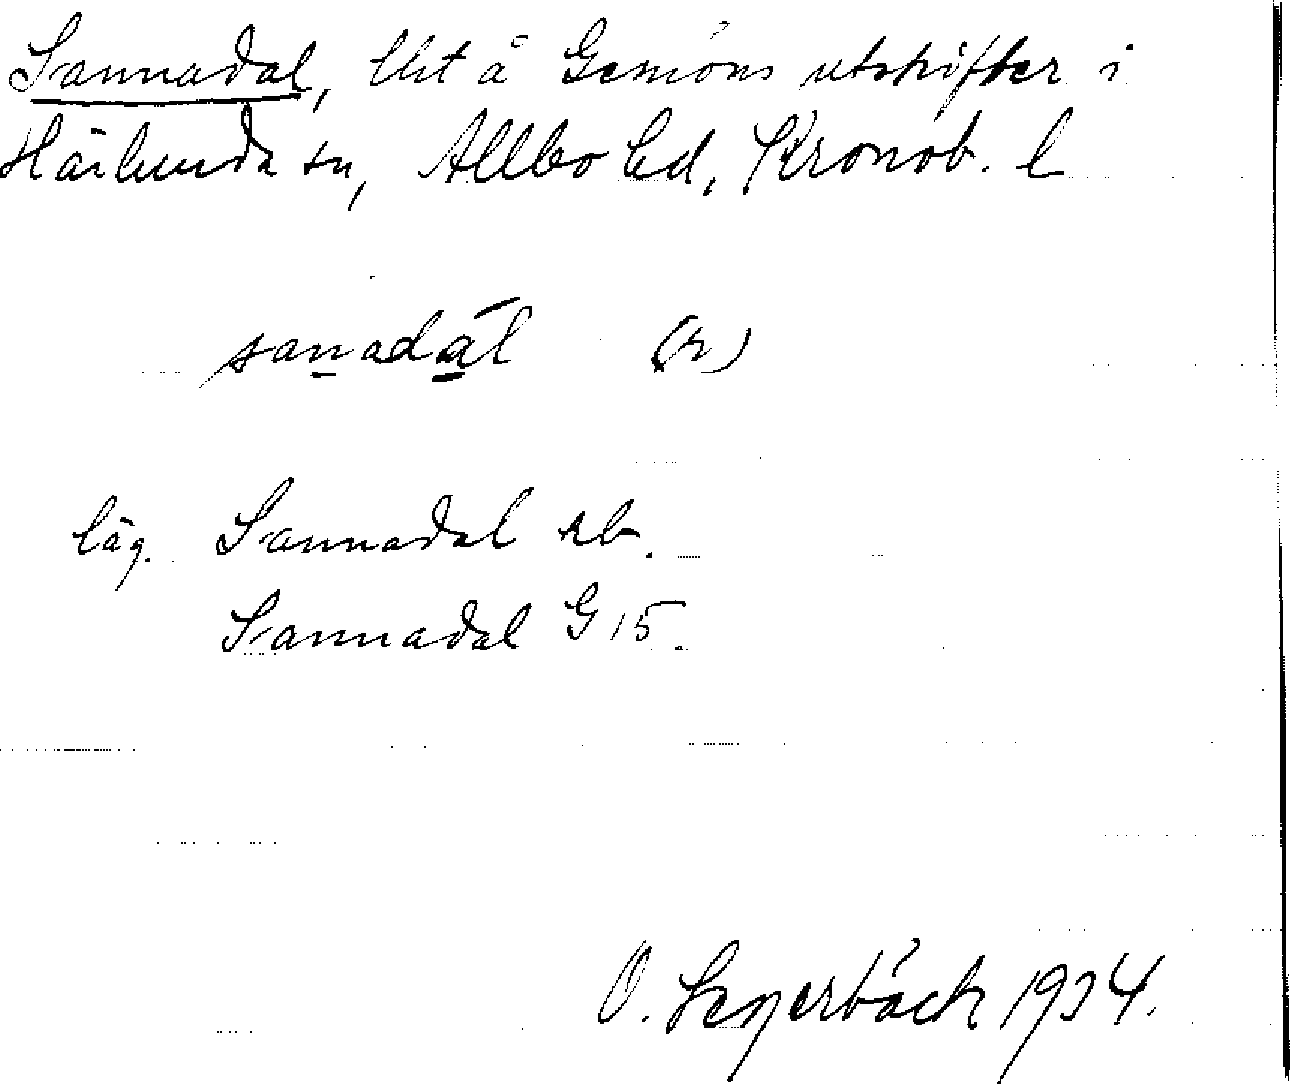 Sannadal, lht å Gemöns utskifter i
Härlunda sn, Allbo hd, Kronob. l
sanadál (r)
läg. Sannadal rb.
Sannadal G 15.
O. Segerbäck 1934.